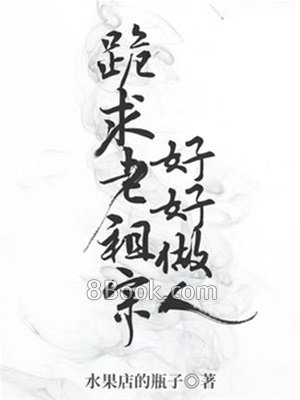 跪求老祖宗
好好做人
8Book.com
水果店的瓶子◎著